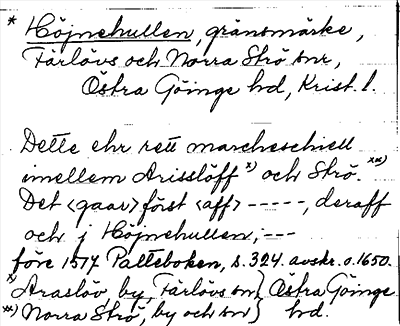 * Höjnehullen, gränsmärke,
Färlövs och Norra Strö snr,
Östra Göinge hd, Krist. l.
Dette ehr rett marcheschiell
imellem Arisslöff x) och Strö. xx)
Det <gaar> först <aff> -----, deraff
och j Höjnehullen, ---
före 1577 Palteboken, s. 324. avskr. o. 1650.
x) Araslöv, by, Färlövs sn } Östra Göinge
xx) Norra Strö, by och sn } hd.